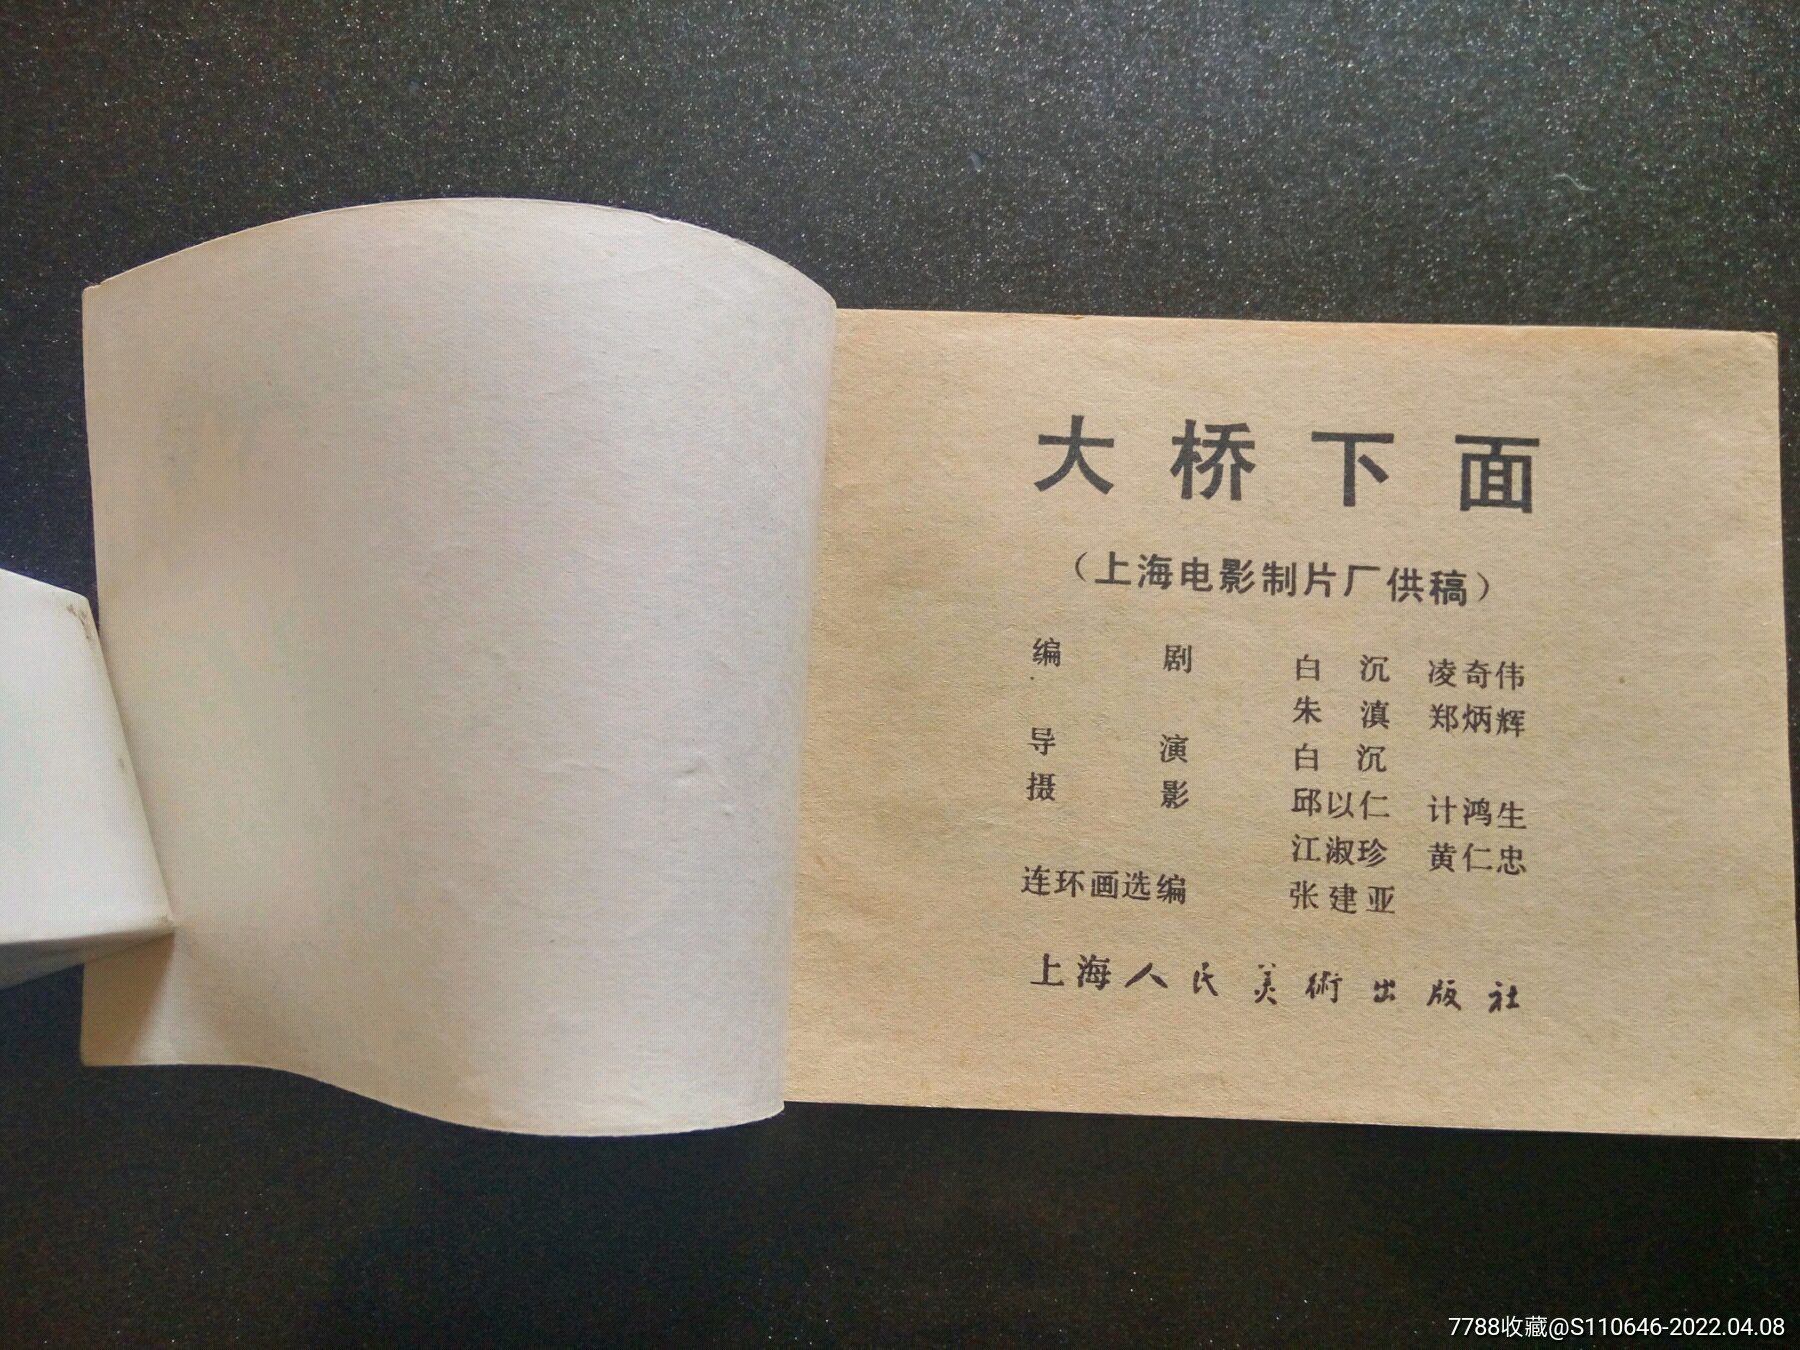 大桥下面
（上海电影制片厂供稿）
编 剧 白 沉 凌奇伟
朱 滇 郑炳辉
导 演 白 沉
摄 影 邱以仁 计鸿生
江淑珍 黄仁忠
连环画选编 张建亚
上海人民美術出版社
7788收藏@S110646-2022.04.08